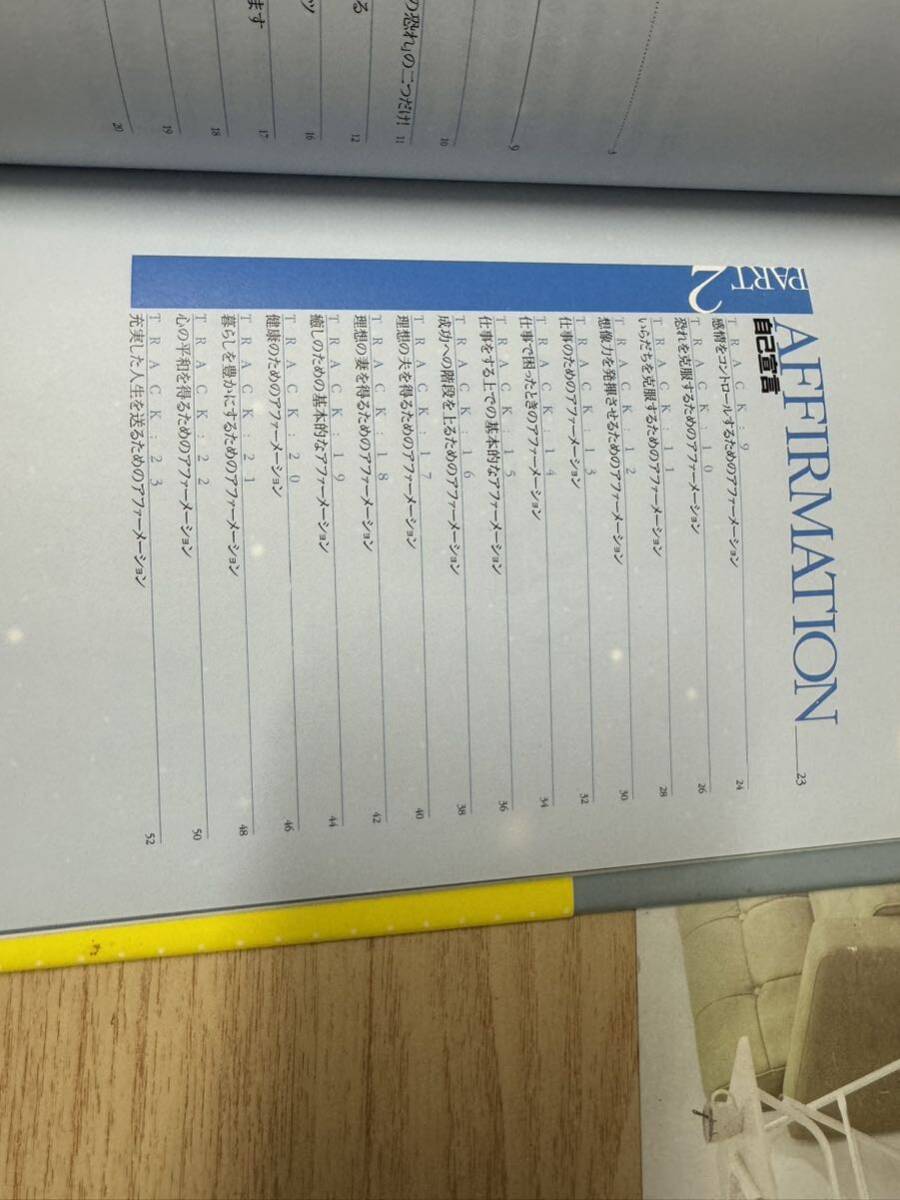 の恐れの二つだけ!
る
ッ
ます
3
9
10
11
12
16
17
18
19
20
PART 2
AFFIRMATION 23
自己宣言
TRACK:9
感情をコントロールするためのアファーメーション 24
TRACK:10
恐れを克服するためのアファーメーション 26
TRACK:11
いらだちを克服するためのアファーメーション 28
TRACK:12
想像力を発揮させるためのアファーメーション 30
TRACK:13
仕事のためのアファーメーション 32
TRACK:14
仕事で困ったときのアファーメーション 34
TRACK:15
仕事をする上での基本的なアファーメーション 36
TRACK:16
成功への階段を上るためのアファーメーション 38
TRACK:17
理想の夫を得るためのアファーメーション 40
TRACK:18
理想の妻を得るためのアファーメーション 42
TRACK:19
癒しのための基本的なアファーメーション 44
TRACK:20
健康のためのアファーメーション 46
TRACK:21
暮らしを豊かにするためのアファーメーション 48
TRACK:22
心の平和を得るためのアファーメーション 50
TRACK:23
充実した人生を送るためのアファーメーション 52